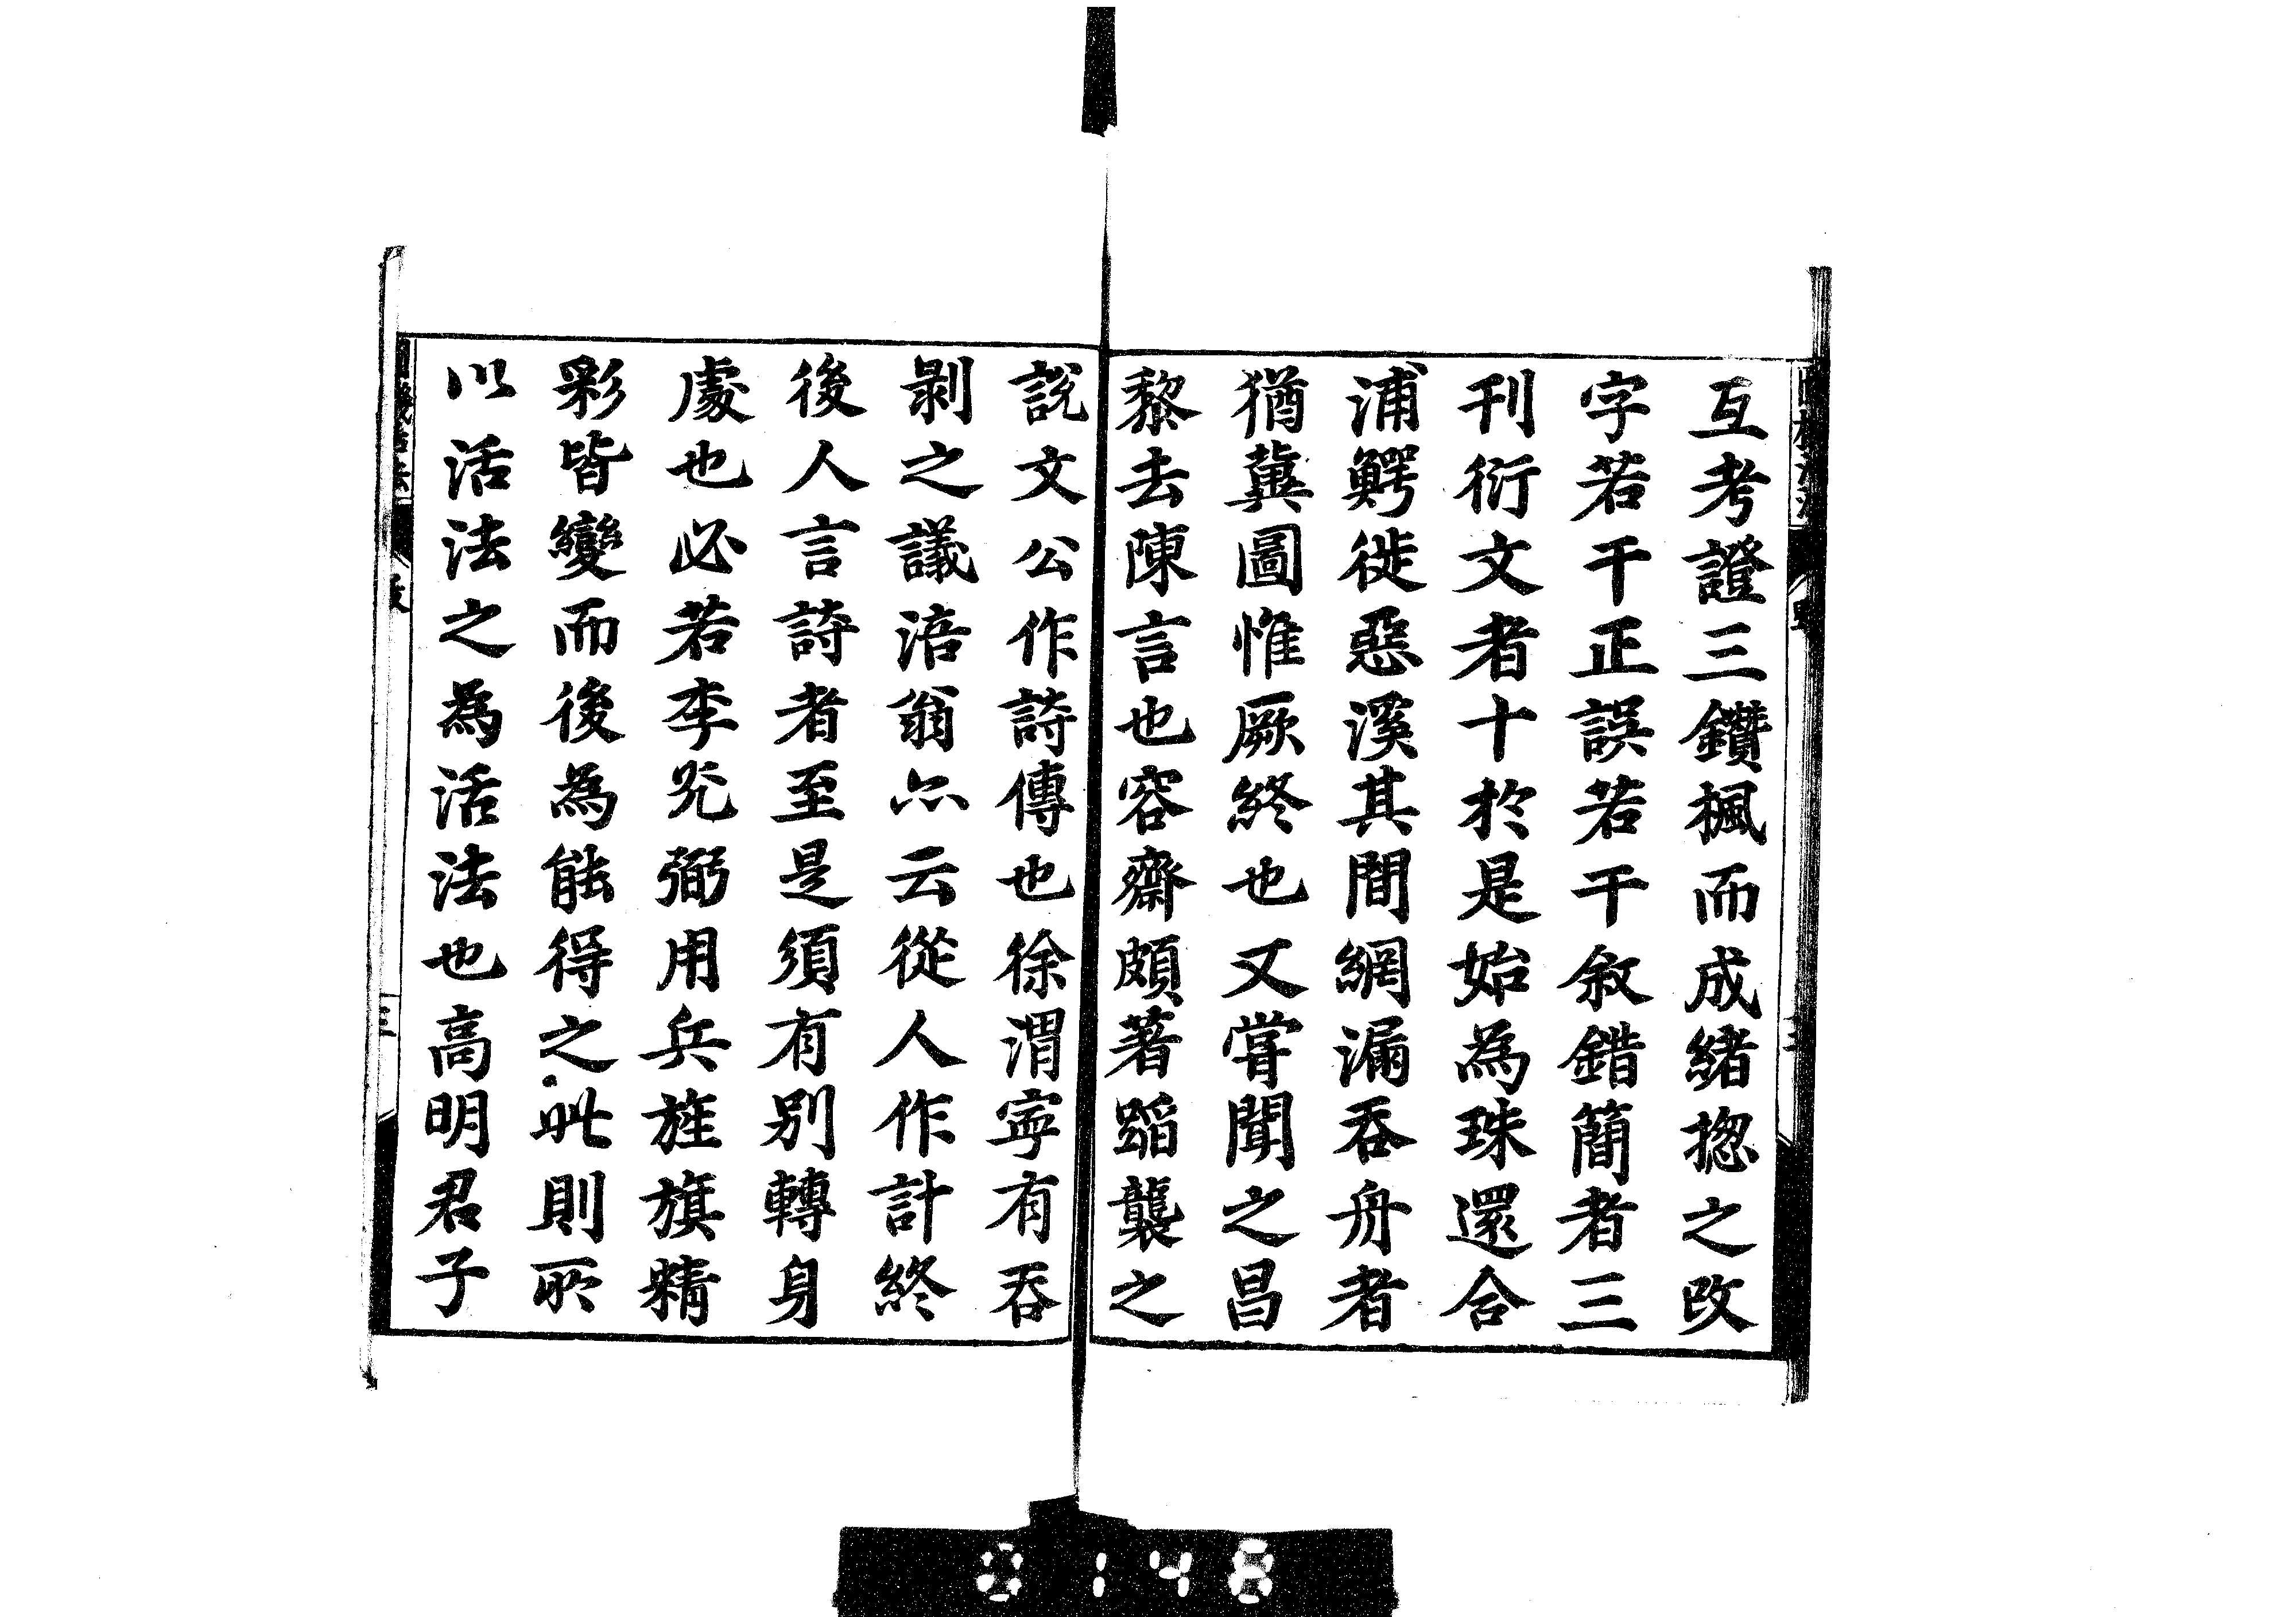 互考證三鑽楓而成緒揔之改
字若干正誤若干叙錯簡者三
刊衍文者十於是始為珠還合
浦鰐徙惡溪其間網漏吞舟者
猶冀圖惟厥終也又嘗聞之昌
黎去陳言也容齋頗著蹈襲之
説文公作詩傳也徐渭寧有吞
剥之議涪翁亦云從人作計終
後人言詩者至是須有别轉身
處也必若李光弼用兵旌旗精
彩皆變而後為能得之此則所
以活法之為活法也高明君子
三
0148